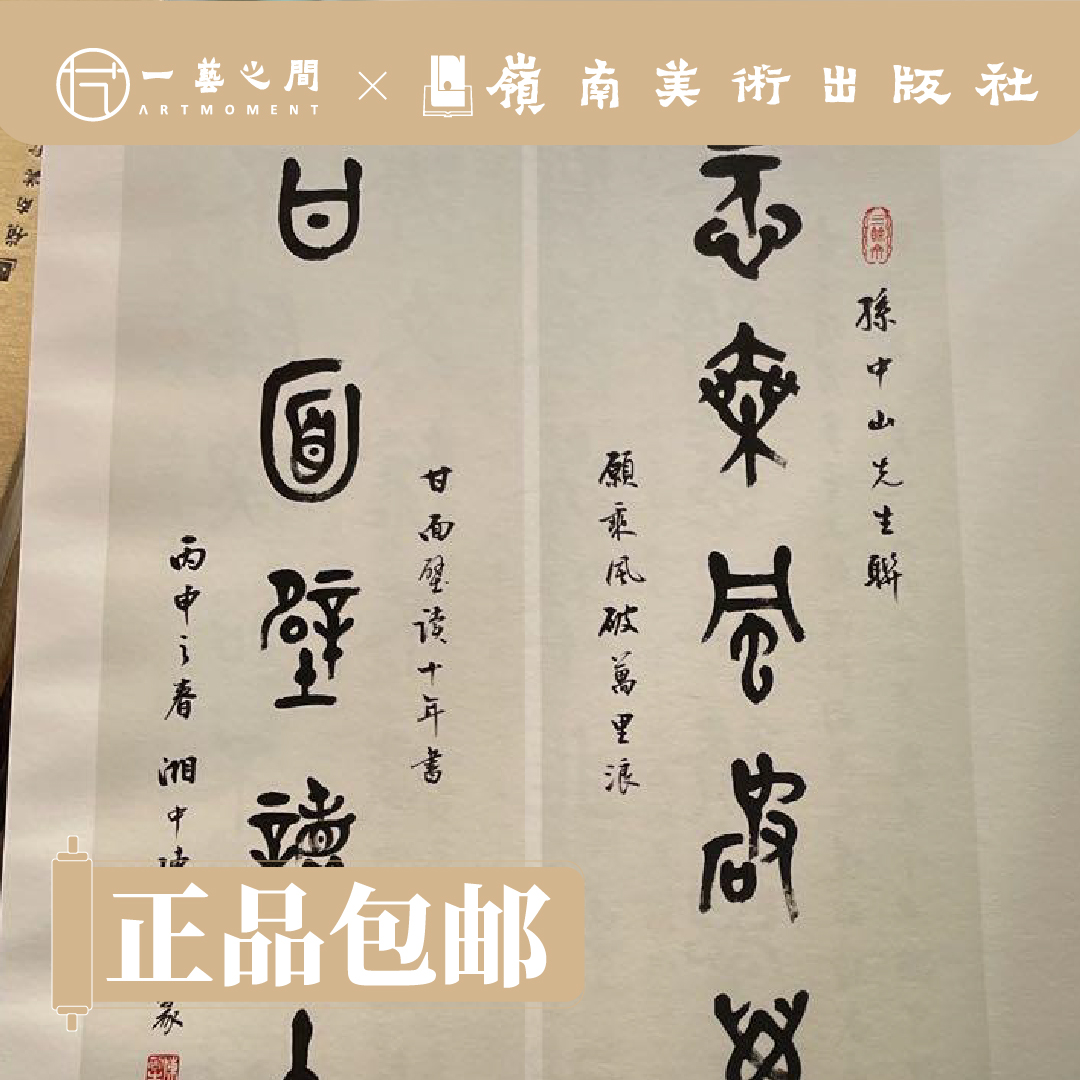 一藝之間
ARTMOMENT
×
嶺南美術出版社
孫中山先生聯
乘風破萬
願乘風破萬里浪
甘面壁讀十
甘面壁读十年書
丙申之春 湘中
篆
正品包邮